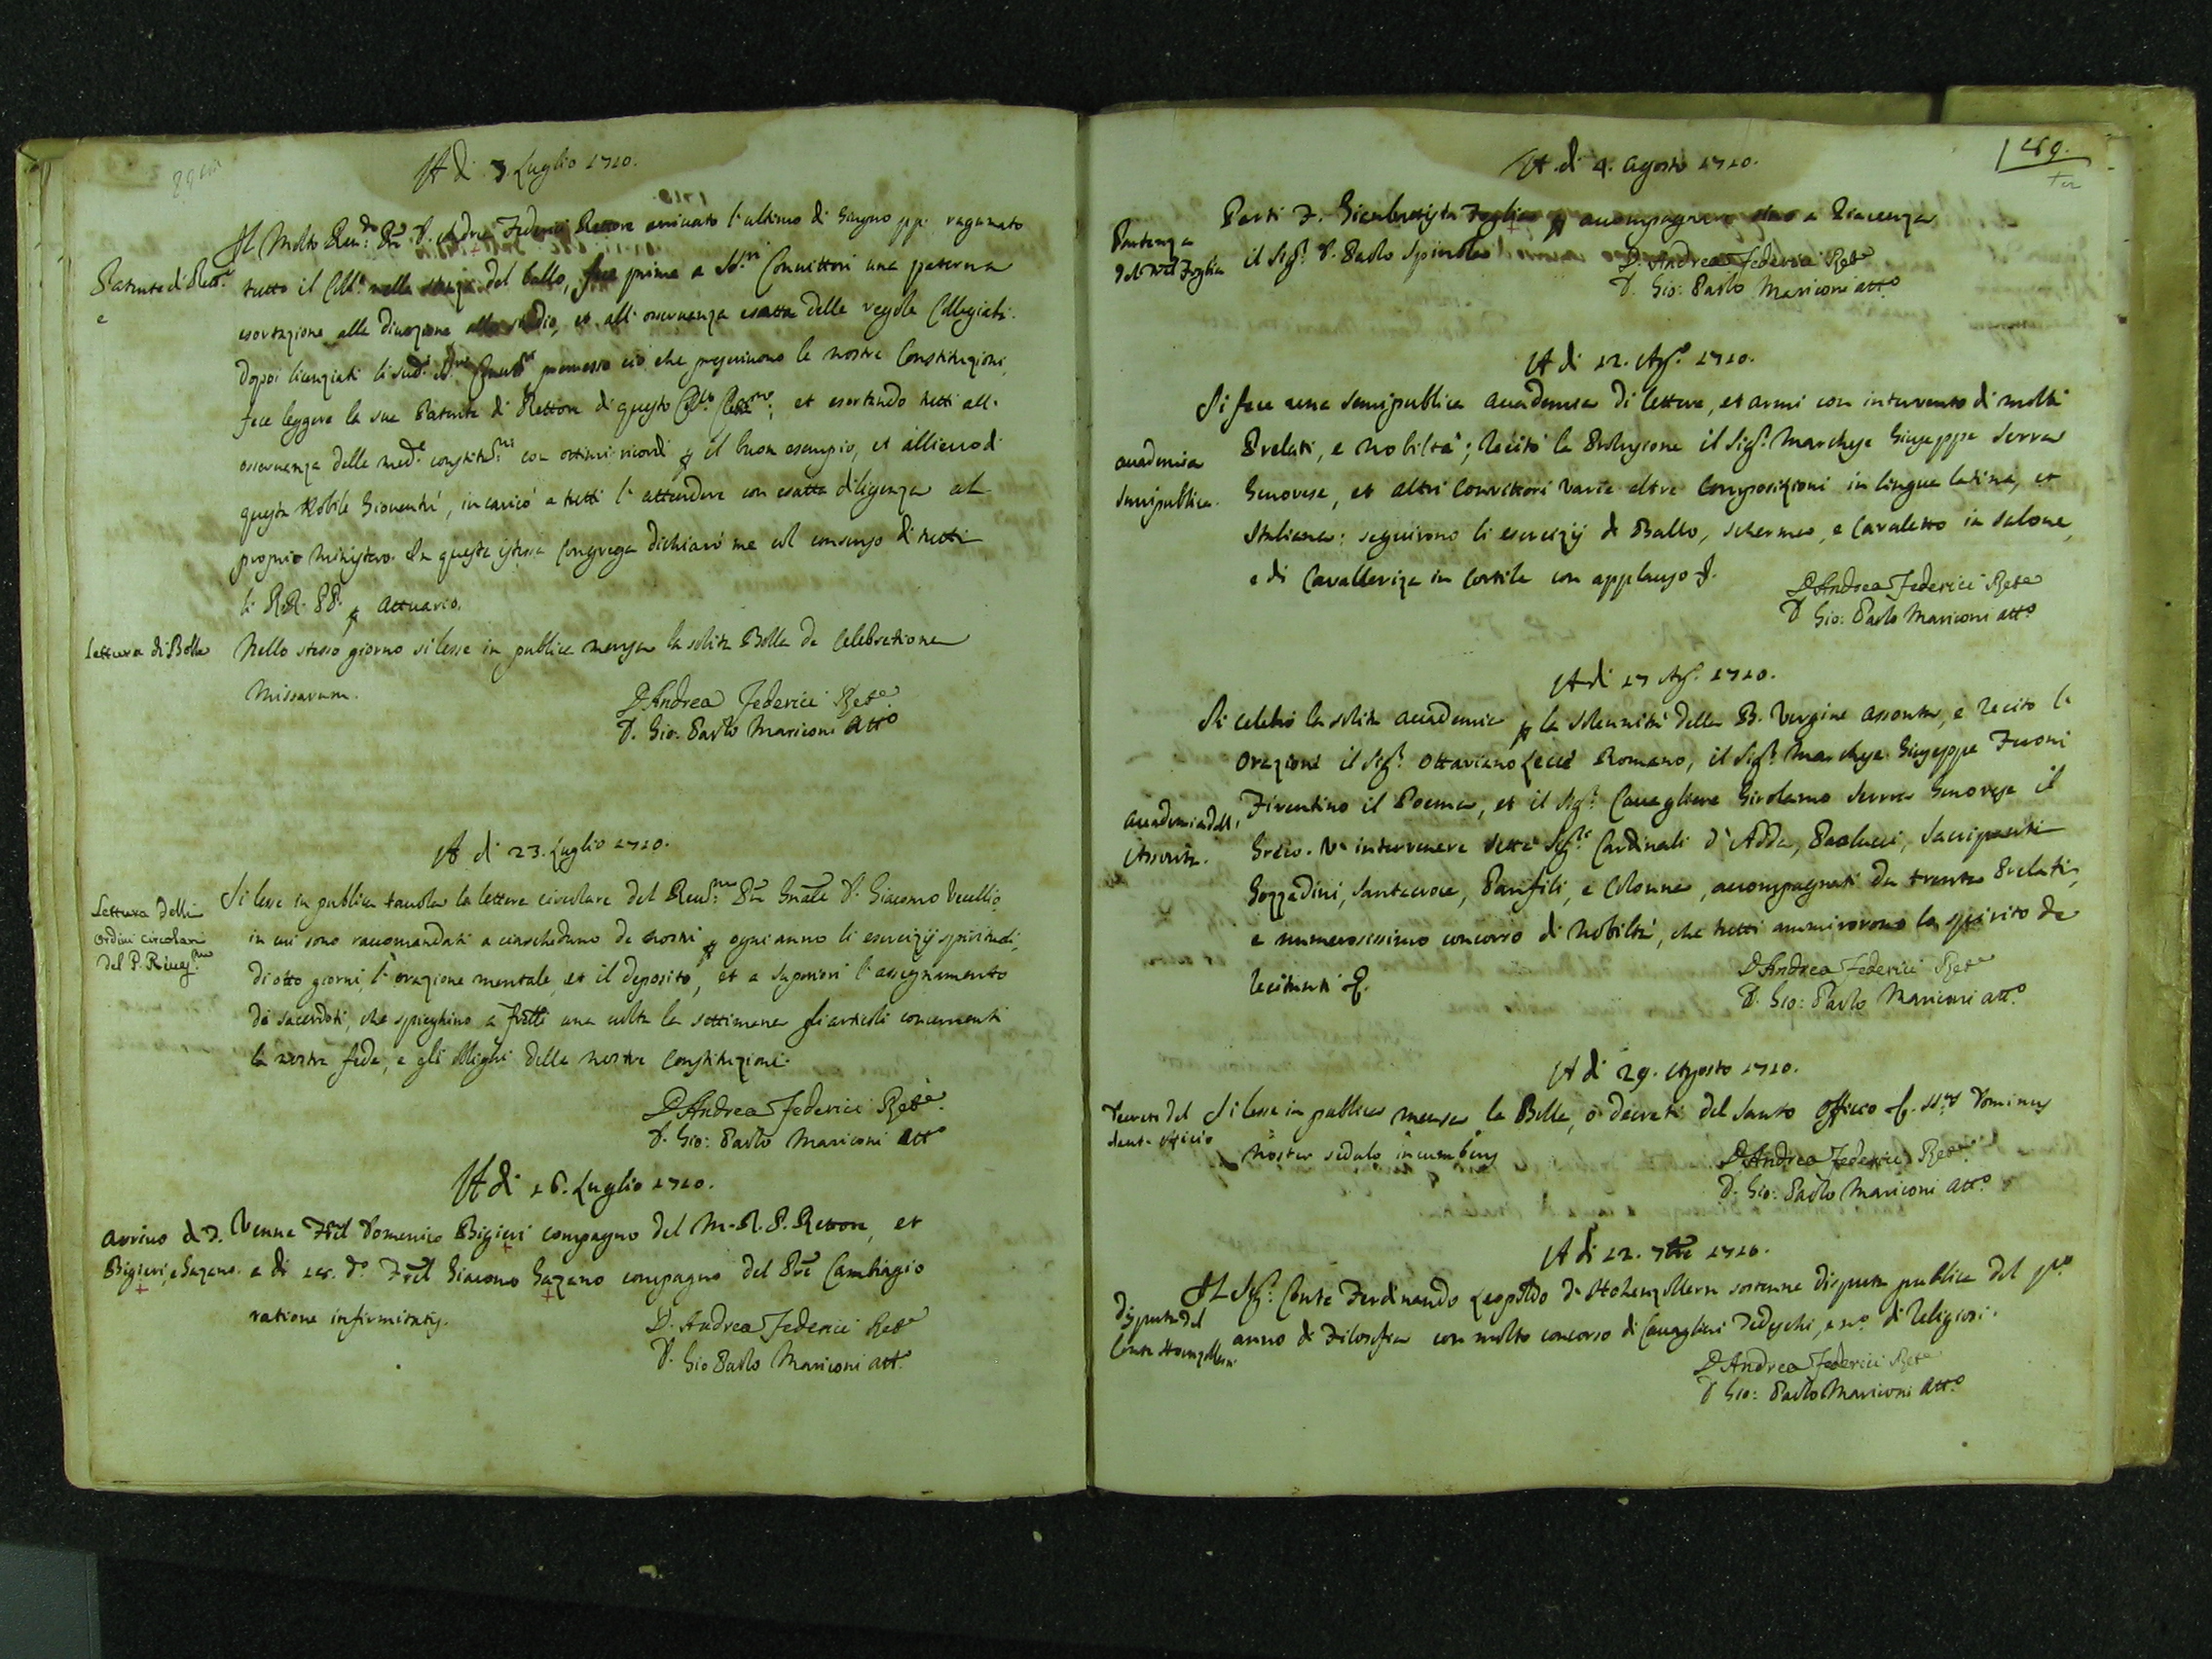 A di 3. Luglio 1710.
Patente di Rett.e
Il Molto Rev.do Pre D. Andrea Federici Rettore arrivato l'ultimo di Giugno pp. ragunato
tutto il Coll.o nella stanza del ballo, fece prima a SS.ri Convittori una paterna
esortazione alla divozione, allo studio, et all'osservanza esatta delle regole Collegiali.
Doppoi licenziati li sud.i SS.ri Convitt.ri premesso ciò che prescrivono le nostre Constitutioni,
fece leggere la sua Patente di Rettore di questo Coll.o Clem.no; et esortando tutti all'
osservanza delle med.e constitut.ni con ottimi ricordi p il buon esempio, et allievo di
questa Nobile Gioventù, incaricò a tutti l'attendere con esatta diligenza al
proprio Ministero. In questa istessa Congrega dichiarò me col consenso di tutti
li RR. PP. p Attuario.
Lettura di Bolla
Nello stesso giorno si lesse in publica mensa la solita Bolla de Celebratione
Missarum.
D. Andrea Federici Ret.e
D. Gio: Paolo Mariconi Att.o
A di 23. Luglio 1710.
Lettura delli
ordini circolari
del P. R.mo
Si lesse in publica tavola la lettera circolare del Rev.mo Pre Gnale D. Giacomo Vecellio,
in cui sono raccomandati a ciascheduno de nostri p ogni anno li esercizij spirituali
di otto giorni, l'orazione mentale, et il deposito, et a Superiori l'assegnamento
di sacerdoti, che spieghino a fratelli una volta la settimana gli articoli concernenti
la nostra fede, e gli oblighi delle nostre Constitutioni.
D. Andrea Federici Ret.e
D. Gio: Paolo Mariconi Att.o
A di 16. Luglio 1710.
Arrivo di F.
Bigieri, e Gazano.
Venne Frel Domenico Bigieri compagno del M. R. P. Rettore, et
a di 18. d.o Frel Giacomo Gazano compagno del Pre Cambiagio
ratione infirmitatis.
D. Andrea Federici Ret.e
D. Gio Paolo Mariconi att.o
189.
A di 4. Agosto 1710.
Partenza
del Frel Foglia
Partì F. Gioanbattista Foglia p accompagnare sino a Piacenza
il Sig.r D. Paolo Spinola.
D. Andrea Federici Ret.e
D. Gio: Paolo Mariconi att.o
A di 12. Ag.o 1710.
Accademia
Semipublica.
Si fece una semipublica accademia di lettere, et armi con intervento di molti
Prelati, e nobiltà; recitò la Prolusione il Sig.r Marchese Giuseppe Serra
Genovese, et altri Convittori varie altre composizioni in lingua latina, et
Italiana; seguirono li esercizij di Ballo, scherma, e Cavaletto in Salone,
e di Cavallerizza in Cortile con applauso &.
D. Andrea Federici Ret.e
D. Gio: Paolo Mariconi att.o
A di 17 Ag.o 1710.
Accademia dell'
Assonta.
Si celebrò la solita accademia p la solennità della B. Vergine Assonta, e recitò l'
Orazione il Sig.r Ottaviano Romano, il Sig.r Marchese Giuseppe Feroni
Fiorentino il Poema, et il Sig.r Cavagliere Girolamo Serra Genovese il
Greco. Vi intervenere sette Sig.ri Cardinali d'Adda, Paolucci, Sacripanti
Gozzadini, Santacroce, Panfili, e Colonna, accompagnati da trenta Prelati,
e numerosissimo concorso di Nobiltà, che tutti ammirorono lo spirito de
recitanti &.
D. Andrea Federici Ret.e
D. Gio: Paolo Mariconi att.o
A di 29. Agosto 1710.
Decreti del
Sant. Officio
Si lesse in publica mensa la Bolla, ò decreti del Santo Officio &. SS.mus Dominus
Noster sedulò incumbens
D. Andrea Federici Ret.e
D. Gio: Paolo Mariconi att.o
A di 12. 7bre 1710.
Disputa del
Conte Hoenzollern
Il Sig.r Conte Ferdinando Leopoldo de Hohenzollern sostenne disputa publica del p.o
anno di Filosofia con molto concorso di Cavaglieri Tedeschi, e di Religiosi.
D. Andrea Federici Ret.e
D. Gio: Paolo Mariconi Att.o